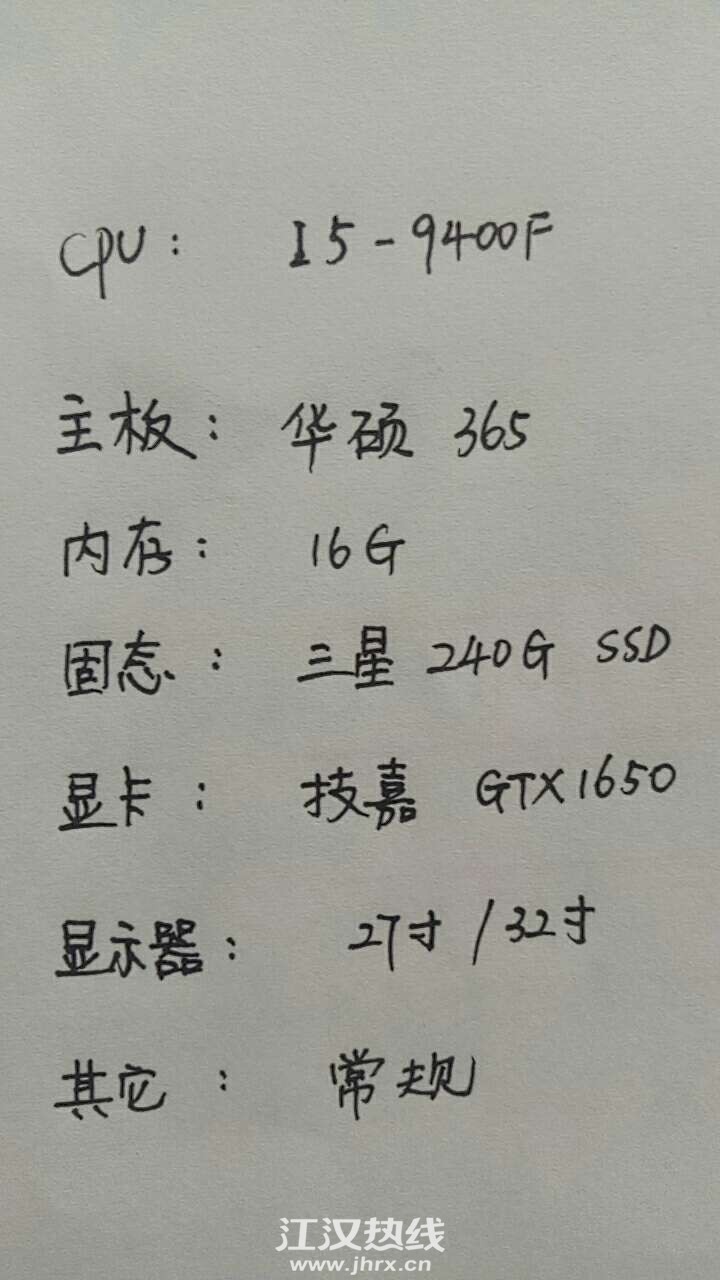 CPU： I5-9400F
主板： 华硕 365
内存： 16G
固态： 三星 240G SSD
显卡： 技嘉 GTX1650
显示器： 27寸/32寸
其它： 常规
江汉热线
www.jhrx.cn